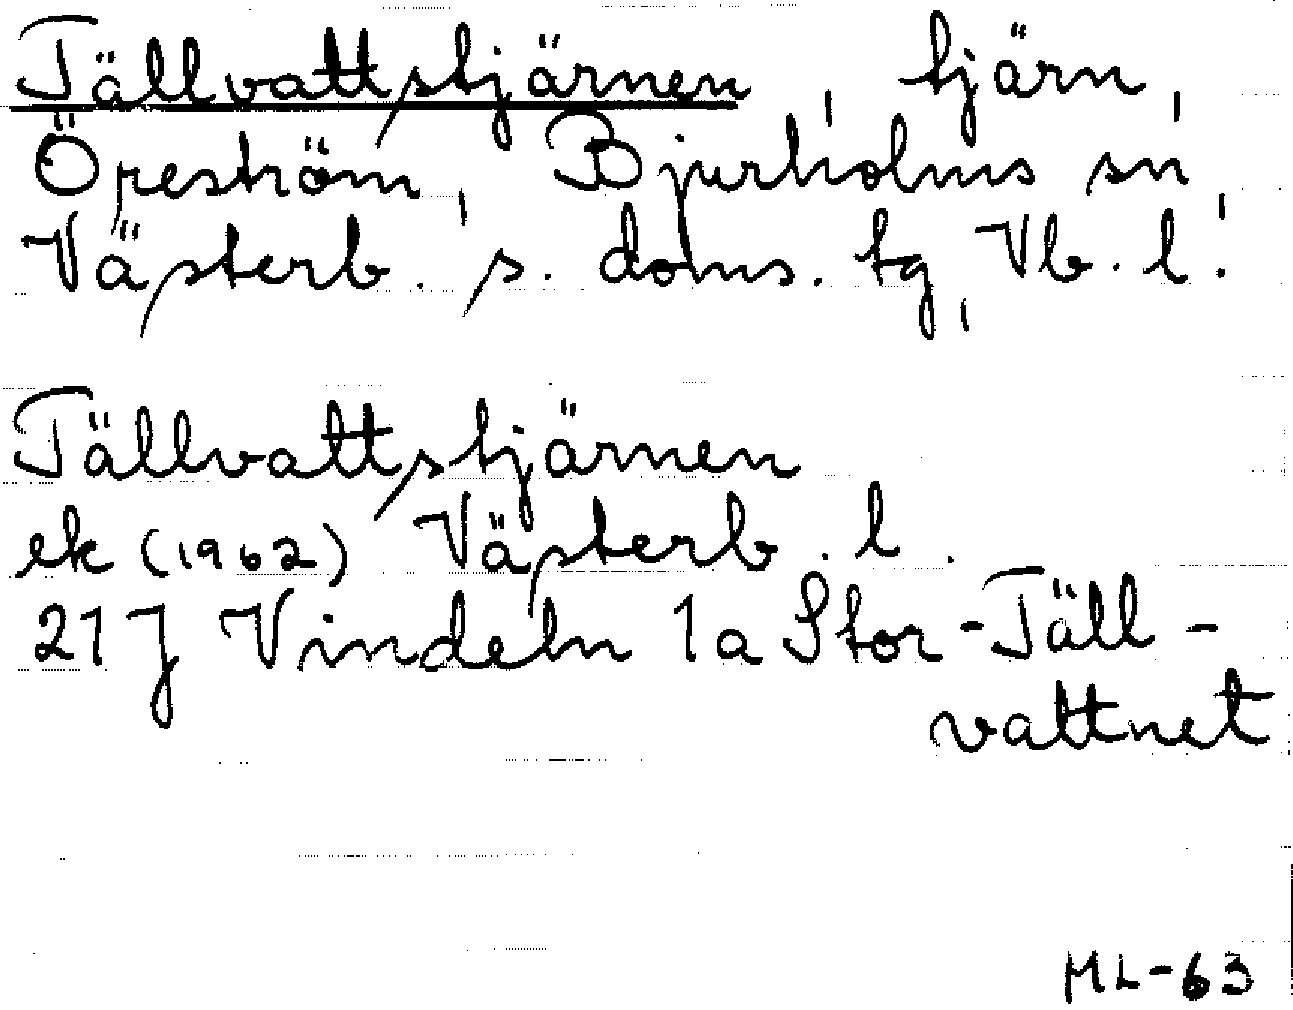 Tällvattstjärnen, tjärn,
Öreström, Bjurholms sn,
Västerb. s. doms. tg, Vb. l.
Tällvattstjärnen
ek (1962) Västerb. l.
21 J Vindeln 1a Stor-Täll-
vattnet
ML-63